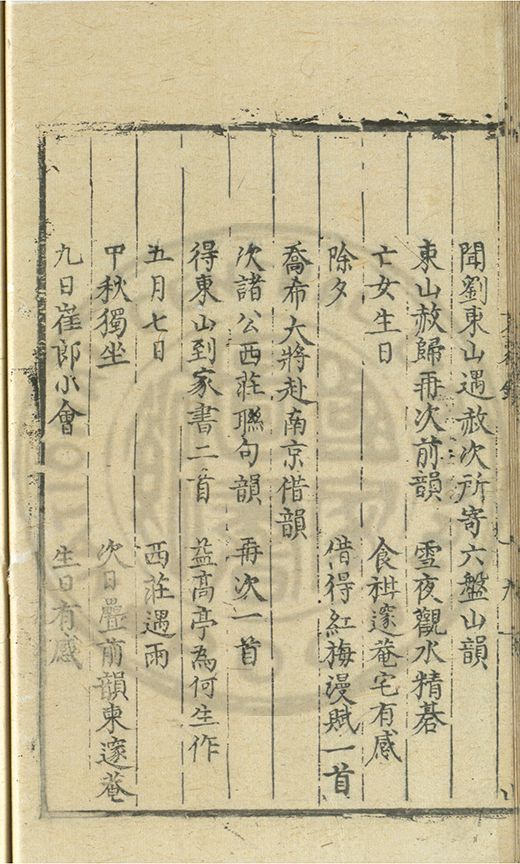 聞劉東山遇赦次所寄六盤山韻
東山赦歸再次前韻　雪夜觀水精碁
亡女生日　食柑邃菴宅有感
除夕　借得紅梅漫賦一首
喬希大將赴南京借韻
次諸公西莊聯句韻　再次一首
得東山到家書二首　益高亭為何生作
五月七日　西莊遇雨
中秋獨坐　次日疊前韻柬邃菴
九日崔郎小會　生日有感